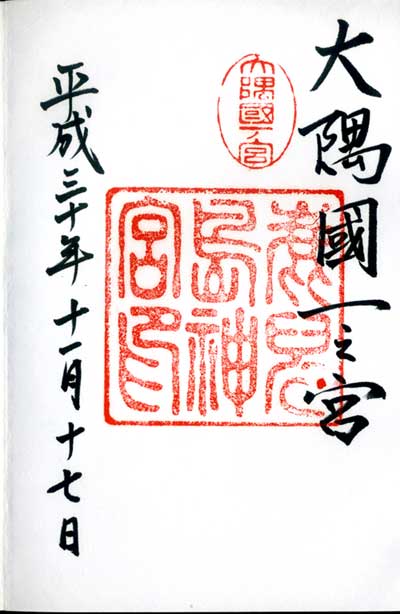 大隅國一之宮
大隅國一宮
鹿兒
島神
宮印
平成三十年十一月十七日